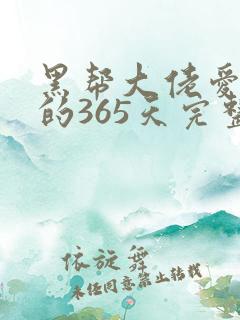 黑帮大佬爱
的365天完整
依旋舞
未经同意禁止转载